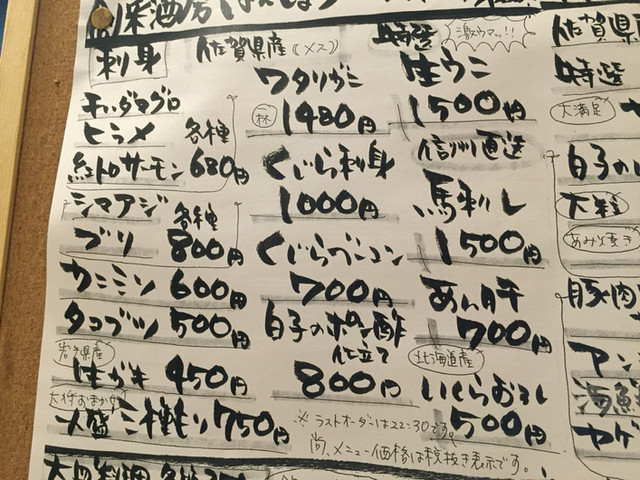 創彩酒房
刺身
キハダマグロ
ヒラメ
紅トロサーモン
各種
680円
シマアジ
ブリ
各種
800円
カニミソ 600円
タコブツ 500円
岩手県産
生ガキ 450円
大将おまかせ
一人盛 三種もり 750円
佐賀県産(メス)
ワタリガニ
一杯
1480円
くじら刺身
1000円
くじらベーコン
700円
白子のポン酢
仕立て
800円
※ラストオーダーは22:30です。
尚、メニュー価格は税抜き表示です。
特選
激ウマッ!!
生ウニ
1500円
信州直送
馬刺し
1500円
あん肝
700円
北海道産
いくらおろし
500円
佐賀県
特選
大満足
白子の
大粒
あみ焼き
豚肉
アン
海鮮
ヤゲ